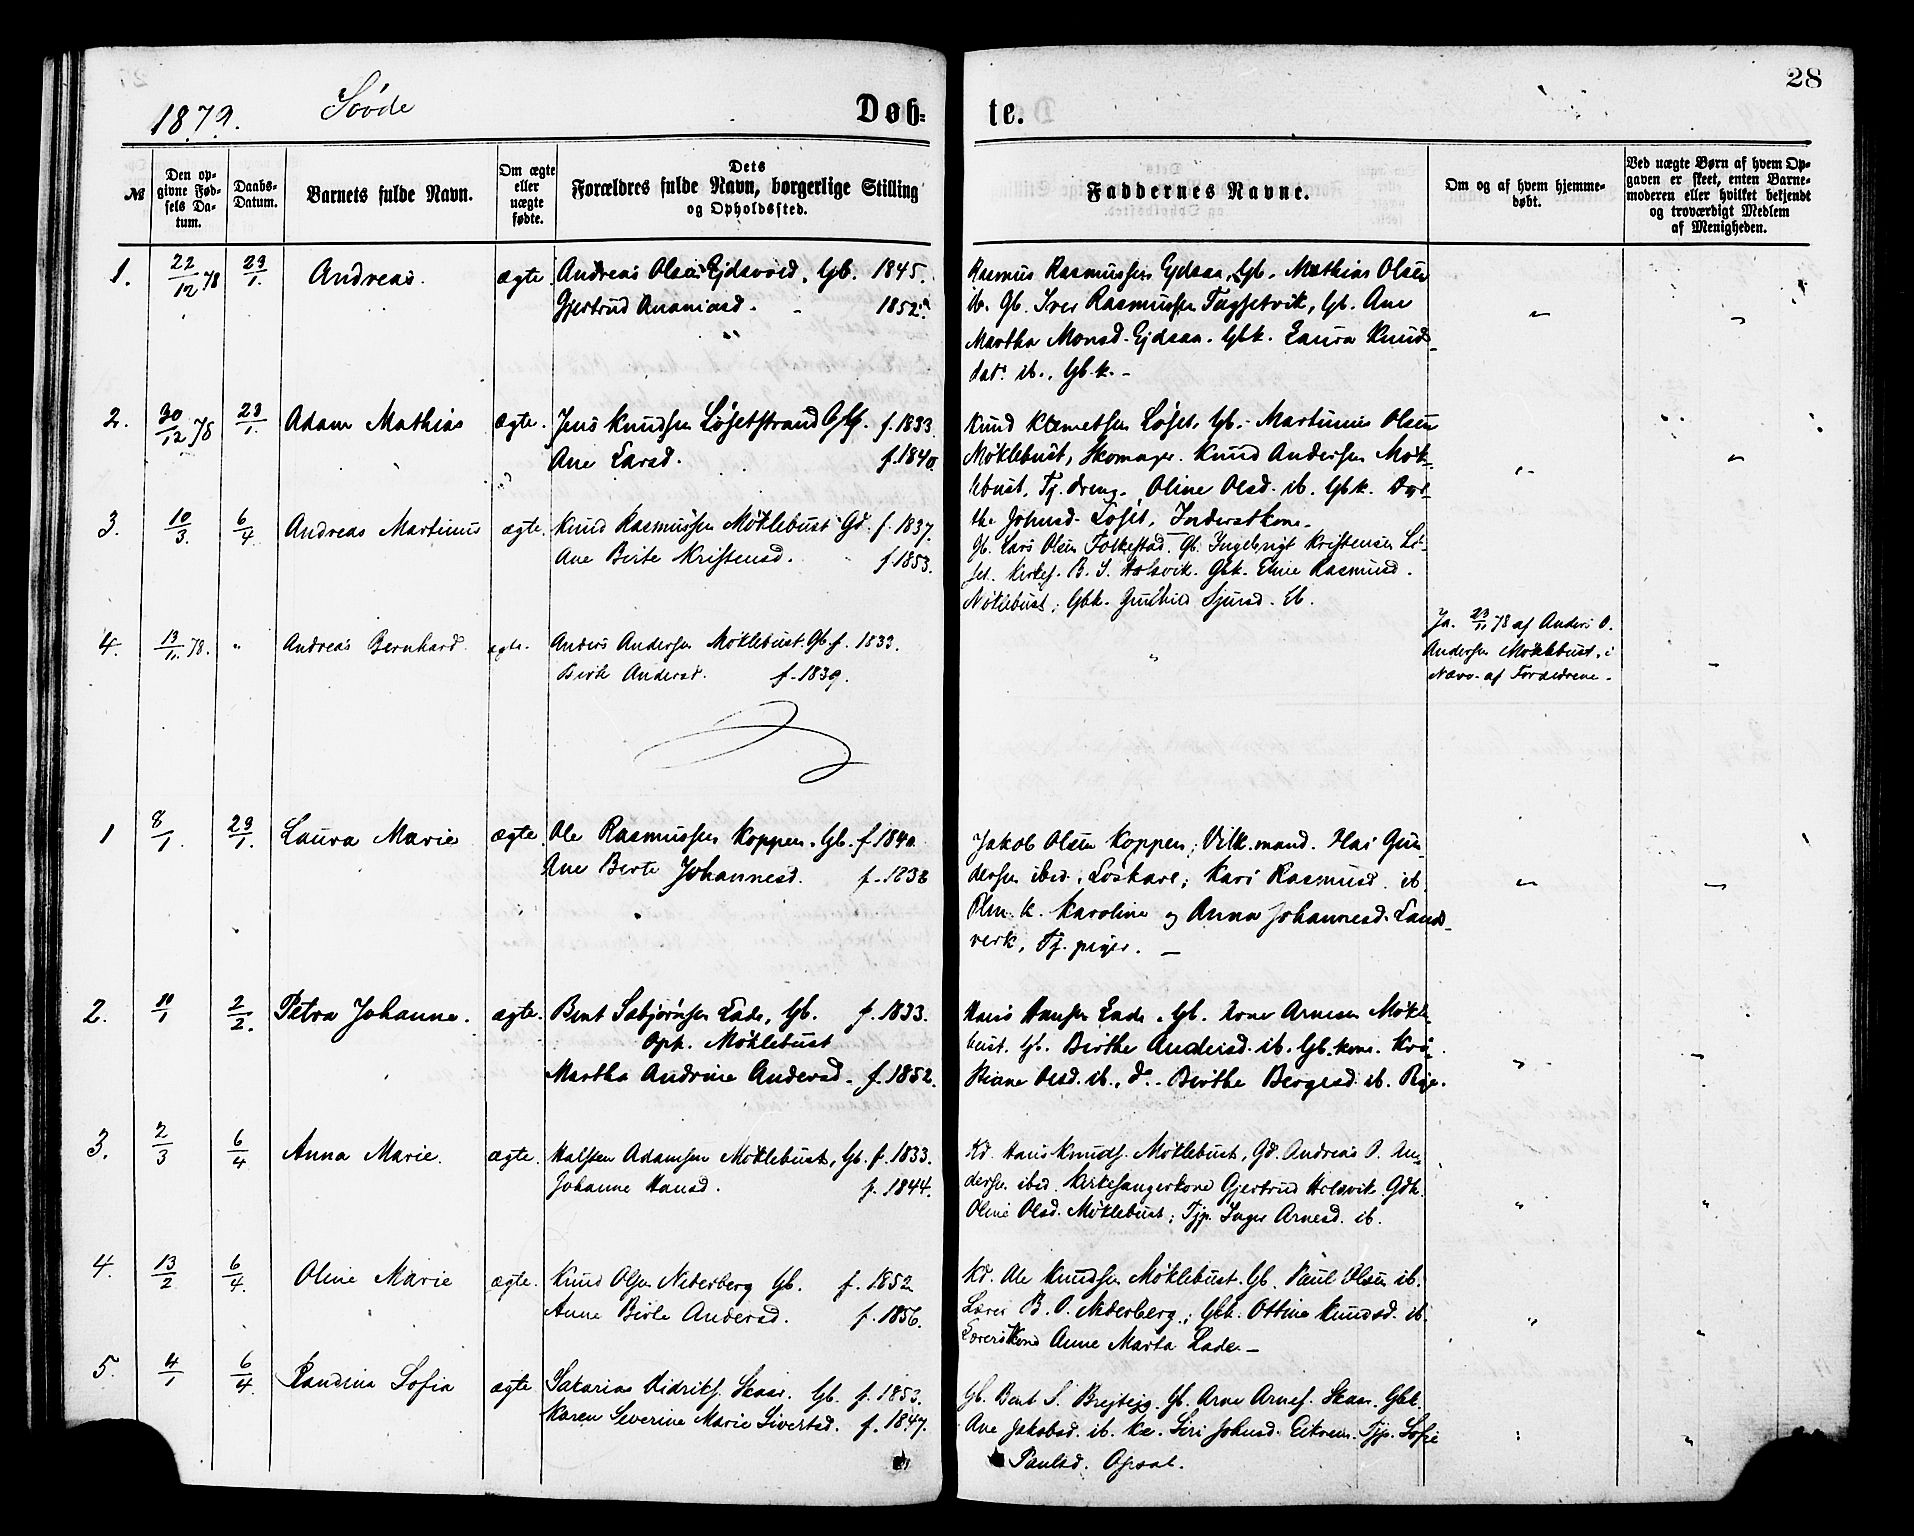 28
1879. Døb=te.
№
Den opgivne Fødsels Datum.
Daabs-Datum.
Barnets fulde Navn.
Om ægte eller uægte fødte.
Dets Forældres fulde Navn, borgerlige Stilling og Opholdssted.
Faddernes Navne.
Om og af hvem hjemmedøbt.
Ved uægte Børn af hvem Opgaven er skeet, enten Barnemoderen eller hvilket bekjendt og troværdigt Medlem af Menigheden.
1. 22/12 78 29/1. Andreas. ægte. Andreas Olsen Ejdsvord, Gb. 1845.
Gjertrud Ananiasd. 1852.
Rasmus Rasmussen Ejdsaa, Gb. Mathias Olsen
ib. Gb. Iver Rasmussen Gb. Ane
Martha Monsd. Ejdsaa. Gbk. Laura Knuds
dat. ib., Gb.k. -
2. 30/12 78 29/1. Adam Mathias ægte. Jens Knudsen Løsetstrand f. 1833.
Ane Larsd. f. 1840
Knud Klemetsen Løset, Gb. Martinus Olsen
Møklebust, Skomager. Knud Andersen Møk-
lebust, Tj. dreng. Oline Olsd. ib. Gbk. Dor-
the Johnsd. Løset, Inderstkone.
3. 10/3. 6/4 Andreas Martinus ægte. Knud Rasmussen Møklebust Gd. f. 1837.
Ane Birte Kristensd. f. 1853.
Gb. Lars Olsen Folkestad. Gb. Ingebrigt Kristensen Lø-
set. Kirkes. B. S. Holsvik. Gbk. Eline Rasmusd.
Møklebust; Gbk. Gunhild Sjursd. ib.
4. 13/11. 78. " Andreas Bernhard. ægte. Anders Andersen Møklebust. Gb. f. 1833.
Birte Andersd. f. 1839.
Ja. 23/11 78 af Anders O.
Andersen Møklebust, i
Nærv. af Forældrene.
1 8/1. 29/1. Laura Marie ægte. Ole Rasmussen Koppen. Gb. f. 1840.
Ane Berte Johannesd. f. 1838
Jakob Olsen Koppen, Vilk.mand. Has Gun-
dersen ibid. Løskarl; Kari Rasmusd. ib.
Plm. k. Karoline og Anna Johannesd. Land-
verk, Tj. piger. -
2. 10/1 2/2. Petra Johanne. ægte. Bent Sabjørnsen Lade, Gb. f. 1833.
Oph. Møklebust
Martha Andrine Andersd. f. 1852.
Hans Hansen Lade, Gb. Arnesen Møkle-
bust. Gb. Birthe Andersd. ib. Gb.kone. Kri-
stiane Olsd. ib., do. Birthe Bergesd. ib. Pige.
3. 2/3 6/4 Anna Marie. ægte. Halsten Adamsen Møklebust, Gb. f. 1833.
Johanne Hansd. f. 1844.
Kd. Hans Knuds. Møklebust, Gd. Andreas O. An-
dersen ibid. Kirkesangerkone Gjertrud Holsvik. Gdk.
Oline Olsd. Møklebust; Tjp. Inger Arnesd. ib.
4. 13/2 6/4. Oline Marie ægte. Knud Olsen Nederberg Gb. f. 1852
Anne Birte Andersd. f. 1856.
Kd. Ole Knudsen Møklebust. Gb. Paul Olsen ib.
Lærer B. O. Nederberg; Gbk. Ottine Knudsd. ib.
Lærerskone Anne Marta Lade -
5. 4/1 6/4. Randina Sofia ægte Sakarias Didriks. Skaar. Gb. f. 1853.
Karen Severine Marie Sivertsd. f. 1847.
Gb. Bent S. Brejtejg. Gb. Arne Arnes. Skaar. Gbk.
Ane Jakobsd. ib. Siri Johnsd. Eikrem. Tjp. Sofie
Paulsd. Opsal.